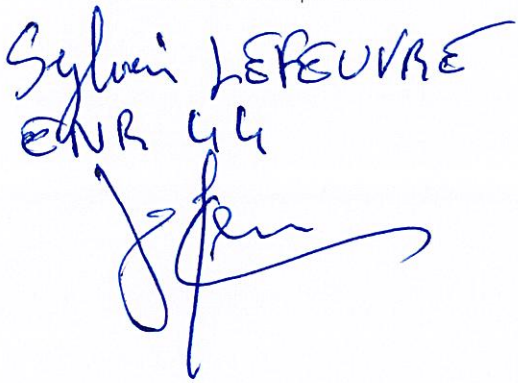 Sylvain LEFEUVRE
ENR 44